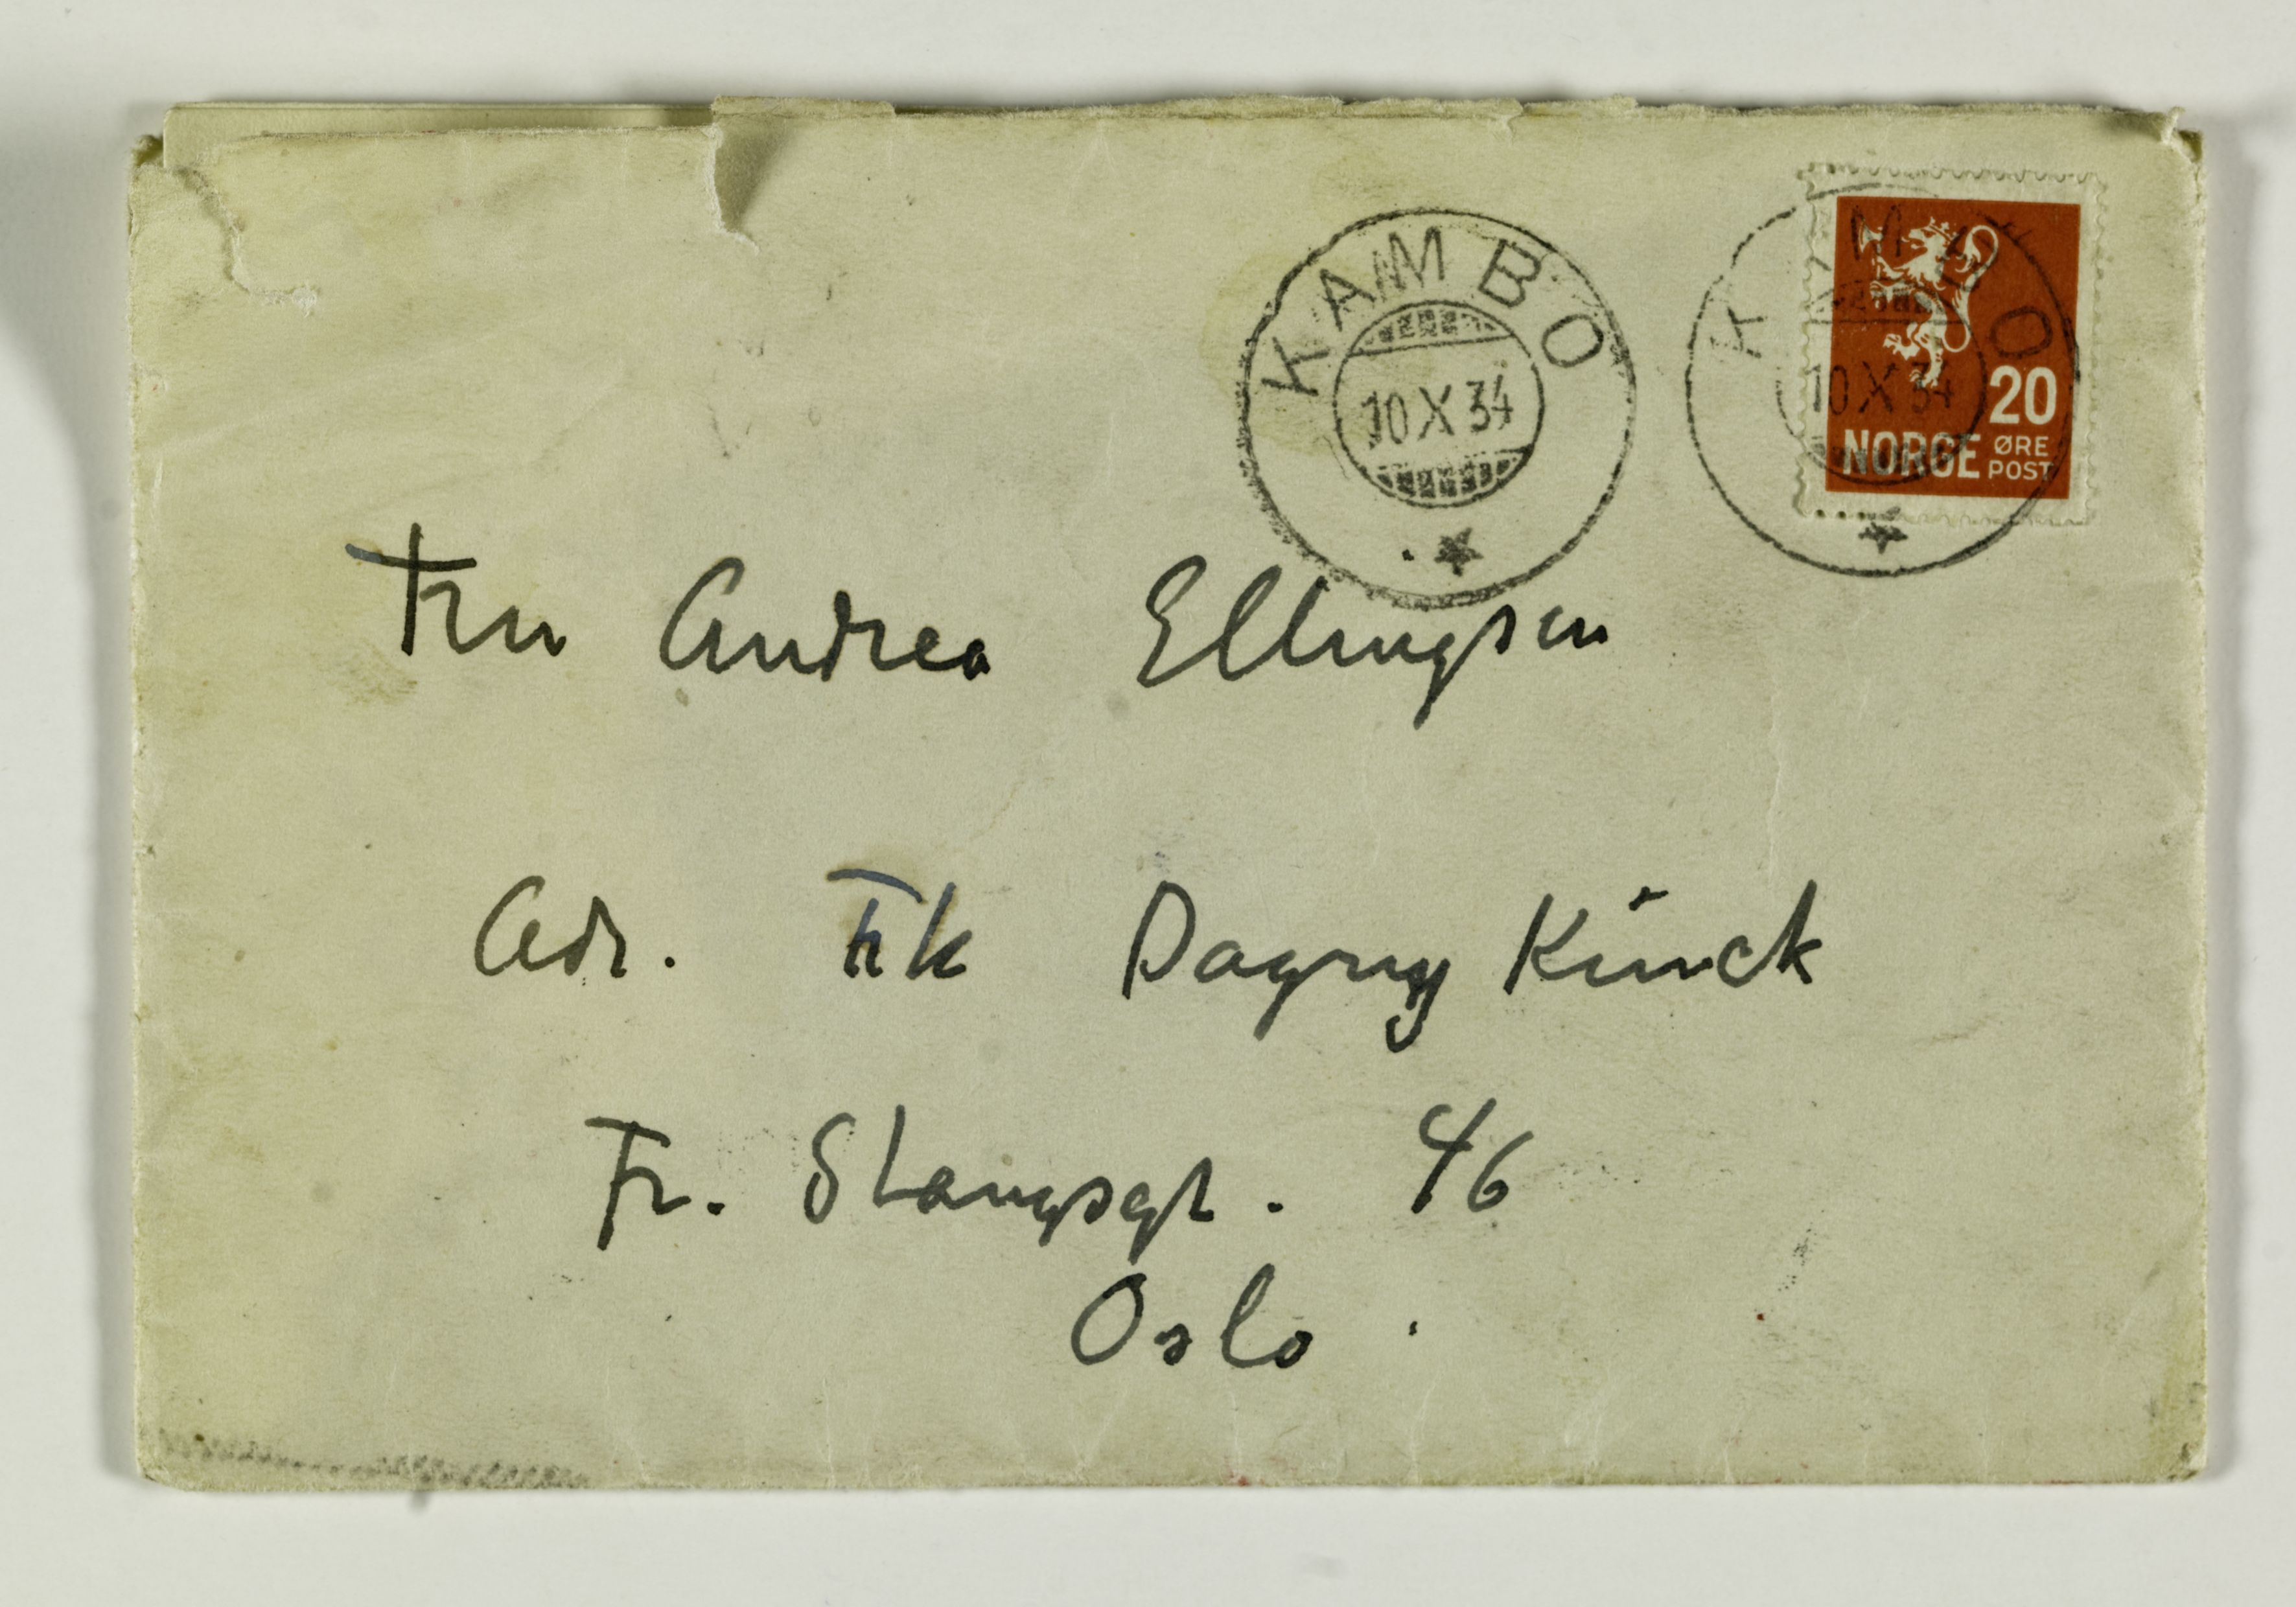 KAMBO
10 X 34
KAMBO
10 X 34
20
NORGE ØRE
POST
Fru Andrea Ellingsen
Adr. Frk Dagny Kinck
Fr. Stangsgt. 46
Oslo.